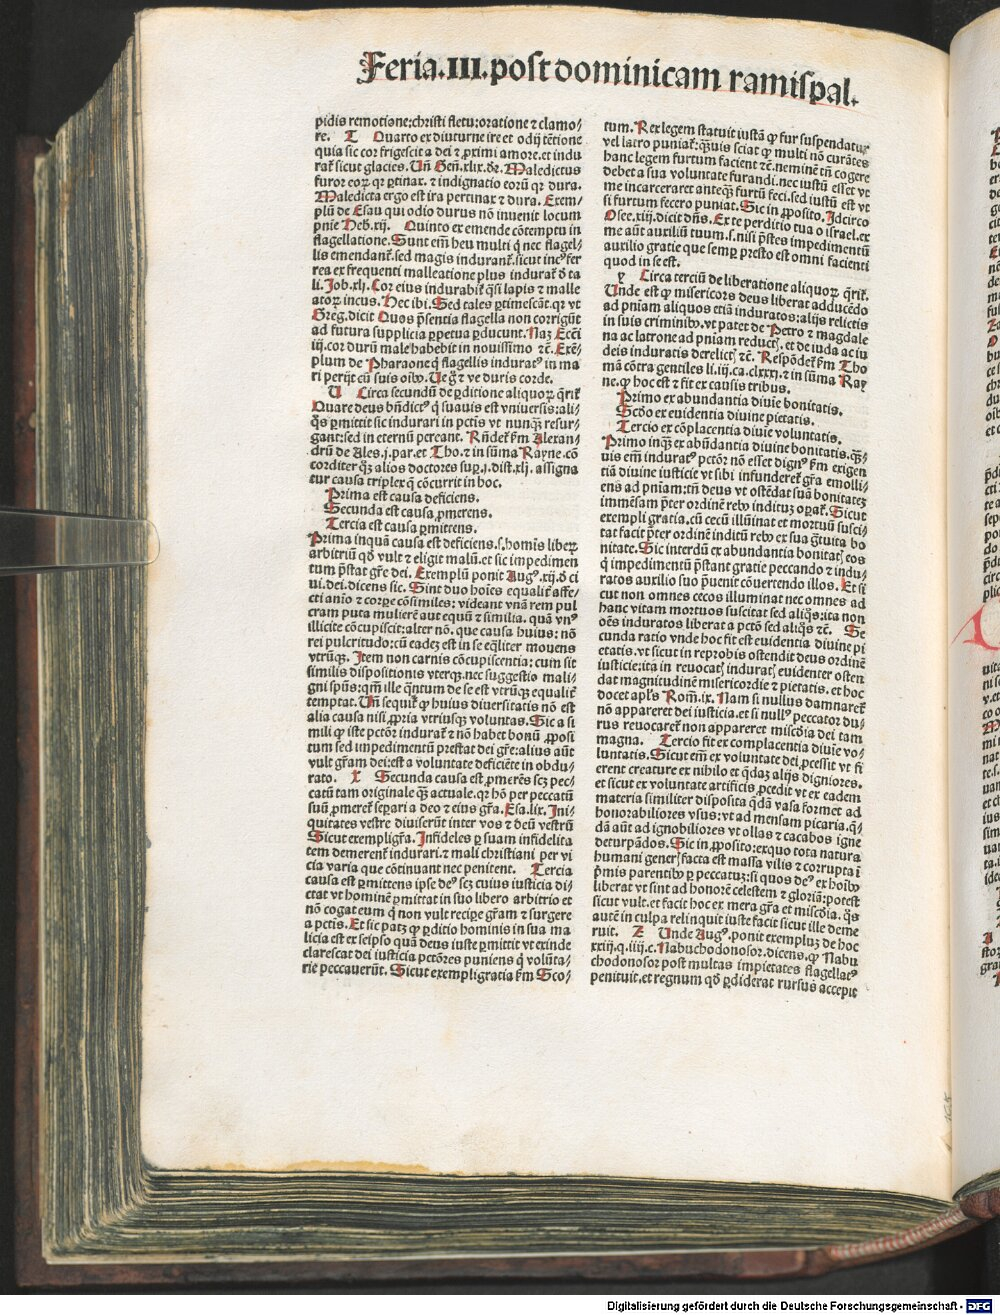 Feria.III.post dominicam ramispal.
pidis remotione:christi fletu:oratione ⁊ clamo⸗
re. T Quarto ex diuturne ire et odij tẽtione
quia sic cor frigescit a dei ⁊ ꝓximi amore.et indu
rat̃ sicut glacies. Uñ Geñ.xlix.dr̃. Maledictus
furor eoꝝ qꝛ ꝑtinax. ⁊ indignatio eorũ qꝛ dura.
Maledicta ergo est ira pertinax ⁊ dura. Exem⸗
plũ de Esau qui odio durus nõ inuenit locum
pnĩe Heb.xij. Quinto ex emende cõtemptu in
flagellatione. Sunt em̃ heu multi q̃ nec flagel⸗
lis emendant̃.sed magis indurant̃.sicut incꝰ fer
rea ex frequenti malleatione plus indurat̃ ð ta
li. Job.xlj. Cor eius indurabit̃ q̃si lapis ⁊ malle
atoꝝ incus. Hec ibi. Sed tales ꝑtimescãt.qꝛ vt
Greg.dicit Quos p̃sentia flagella non corrigũt
ad futura supplicia ꝑpetua ꝑducunt. Naꝫ Ecc̃i
iij.cor durũ male habebit in nouissimo ⁊c̃. Exẽ⸗
plum de Pharaone q̃ flagellis induratꝰ in ma
ri perijt cũ suis oĩbꝰ. Ue g̃ ⁊ ve duris corde.
U Circa secundũ de ꝑditione aliquoꝝ q̃rit̃
Quare deus bñdictꝰ q̃ suauis est vniuersis:ali⸗
q̃s ꝑmittit sic indurari in pctĩs vt nunqꝫ resur⸗
gant:sed in eternũ pereant. Rñdet̃ ẜm Alexan⸗
drũ de Ales.j.par.et Tho.⁊ in sũma Rayne.cõ
corditer qꝫ alios doctores suꝑ.j.dist.xlj. assigna
tur causa triplex q̃ cõcurrit in hoc.
Prima est causa deficiens.
Secunda est causa ꝓmerens.
Tercia est causa ꝑmittens.
Prima inquã causa est deficiens.s.homĩs liberꝝ
arbitriũ qð vult ⁊ eligit malũ.et sic impedimen
tum p̃stat gr̃e dei. Exemplũ ponit Augꝰ.xij.ð ci
ui.dei.dicens sic. Sint duo hoĩes equalit̃ affe⸗
cti anĩo ⁊ corpꝑe cõsimiles: videant vnã rem pul
cram puta mulierẽ aut equũ ⁊ similia. quã vnꝰ
illicite cõcupiscit:alter nõ. que causa huius: nõ
rei pulcritudo:cũ eadeꝫ est in se eq̃liter mouens
vtrũqꝫ. Item non carnis cõcupiscentia: cum sit
similis dispositionis vterqꝫ.nec suggestio mali⸗
gni spũs:qm̃ ille q̃ntum de se est vtrũqꝫ equalit̃
temptat. Uñ sequit̃ ꝙ huius diuersitatis nõ est
alia causa nisi ꝓpria vtriusqꝫ voluntas. Sic a si
mili ꝙ iste pctõr indurat̃ ⁊ nõ habet bonũ ꝓposi
tum sed impedimentũ prestat dei gr̃e:alius aũt
vult gr̃am dei:est a voluntate deficiẽte in obdu⸗
rato. X Secunda causa est ꝓmerẽs scꝫ pec⸗
catũ tam originale qꝫ actuale.qꝛ hõ per peccatũ
suũ ꝓmeret̃ seꝑari a deo ⁊ eius gr̃a. Esa.lix. Ini⸗
quitates vestre diuiserũt inter vos ⁊ deũ vestrũ
Sicut exempligr̃a. Infideles ꝑ suam infidelita
tem demerent̃ indurari.⁊ mali christiani per vi
cia varia que cõtinuant nec penitent. Tercia
causa est ꝑmittens ipse deꝰ scꝫ cuius iusticia di⸗
ctat vt hominẽ ꝑmittat in suo libero arbitrio et
nõ cogat eum q̃ non vult recipe gr̃am ⁊ surgere
a pctĩs. Et sic patꝫ ꝙ ꝑditio hominis in sua ma
licia est ex seipso quã deus iuste ꝑmittit vt exinde
clarescat dei iusticia pctõres puniens q̃ volũta⸗
rie peccauerũt. Sicut exempligratia ẜm Sco⸗
tum. Rex legem statuit iustã ꝙ fur suspendatur
vel latro puniat̃: qꝫuis sciat ꝙ multi nõ curãtes
hanc legem furtum facient ⁊c̃.neminẽ tñ cogere
debet a sua voluntate furandi.nec iustũ esset vt
me incarceraret anteqꝫ furtũ feci.sed iustũ est vt
si furtum fecero puniat. Sic in ꝓposito. Idcirco
Osee.xiij.dicit dñs. Ex te perditio tua o israel.ex
me aũt auxiliũ tuum.s.nisi p̃stes impedimentũ
auxilio gratie que semꝑ presto est omni facienti
quod in se est.
y Circa terciũ de liberatione aliquoꝝ q̃rit̃.
Unde est ꝙ misericors deus liberat adducẽdo
ad pniam aliquos etiã induratos:alijs relictis
in suis criminibꝰ.vt patet de Petro ⁊ magdale
na ac latrone ad pniam reductꝭ.et de iuda ac iu
deis induratis derelictꝭ ⁊c̃. Respõdet̃ ẜm Tho
mã cõtra gentiles li.iij.ca.clxxxj.⁊ in sũma Ray
ne.ꝙ hoc est ⁊ fit ex causis tribus.
Primo ex abundantia diuĩe bonitatis.
Scðo ex euidentia diuine pietatis.
Tercio ex cõplacentia diuĩe voluntatis.
Primo inqꝫ ex abũdantia diuine bonitatis.qꝫ⸗
uis em̃ induratꝰ pctõr nõ esset dignꝰ ẜm exigen
tiã diuine iusticie vt sibi infunderet̃ gr̃a emolli⸗
ens ad pniam:tñ deus vt ostẽdat suã bonitateꝫ
immẽsam p̃ter ordinẽ rebꝰ indituꝫ oꝑat̃. Sicut
exempli gratia.cũ cecũ illũinat et mortuũ susci⸗
tat facit p̃ter ordinẽ inditũ rebꝰ ex sua g̃tuita bo
nitate. Sic interdũ ex abundantia bonitatꝭ eos
q̃ impedimentũ p̃stant gratie peccando ⁊ indu⸗
ratos auxilio suo p̃uenit cõuertendo illos. Et si
cut non omnes cecos illuminat nec omnes ad
hanc vitam mortuos suscitat sed aliq̃s:ita non
oẽs induratos liberat a pctõ sed aliq̃s ⁊c̃. Se
cunda ratio vnde hoc fit est euidentia diuine pi
etatis.vt sicut in reprobis ostendit deus ordinẽ
iusticie:ita in reuocatꝭ induratꝭ euidenter osten
dat magnitudinẽ misericordie ⁊ pietatis.et hoc
docet apl̃s Rom̃.ix. Nam si nullus damnaret̃
nõ appareret dei iusticia.et si nullꝰ peccator du⸗
rus reuocaret̃ non appareret miscðia dei tam
magna. Tercio fit ex complacentia diuĩe vo⸗
luntatis. Sicut em̃ ex voluntate dei ꝓcessit vt fi
erent creature ex nihilo et q̃daꝫ alijs digniores.
et sicut ex voluntate artificis ꝓcedit vt ex eadem
materia similiter disposita q̃dã vasa formet ad
honorabiliores vsus:vt ad mensam picaria.q̃⸗
dã aũt ad ignobiliores vt ollas ⁊ cacabos igne
deturpãdos. Sic in ꝓposito:exquo tota natura
humani generꝭ facta est massa vilis ⁊ corrupta ĩ
p̃mis parentibꝰ ꝑ peccatuꝫ:si quos deꝰ ex hoĩbꝰ
liberat vt sint ad honorẽ celestem ⁊ gloriã:potest
sicut vult.et facit hoc ex mera gr̃a et miscðia. q̃s
autẽ in culpa relinquit iuste facit sicut ille deme
ruit. Z Unde Augꝰ.ponit exempluꝫ de hoc
xxiij.q.iiij.c. Nabuchodonosor.dicens.ꝙ Nabu
chodonosor post multas impietates flagellatꝰ
penituit.et regnum qð ꝑdiderat rursus accepit
Digitalisierung gefördert durch die Deutsche Forschungsgemeinschaft - DFG